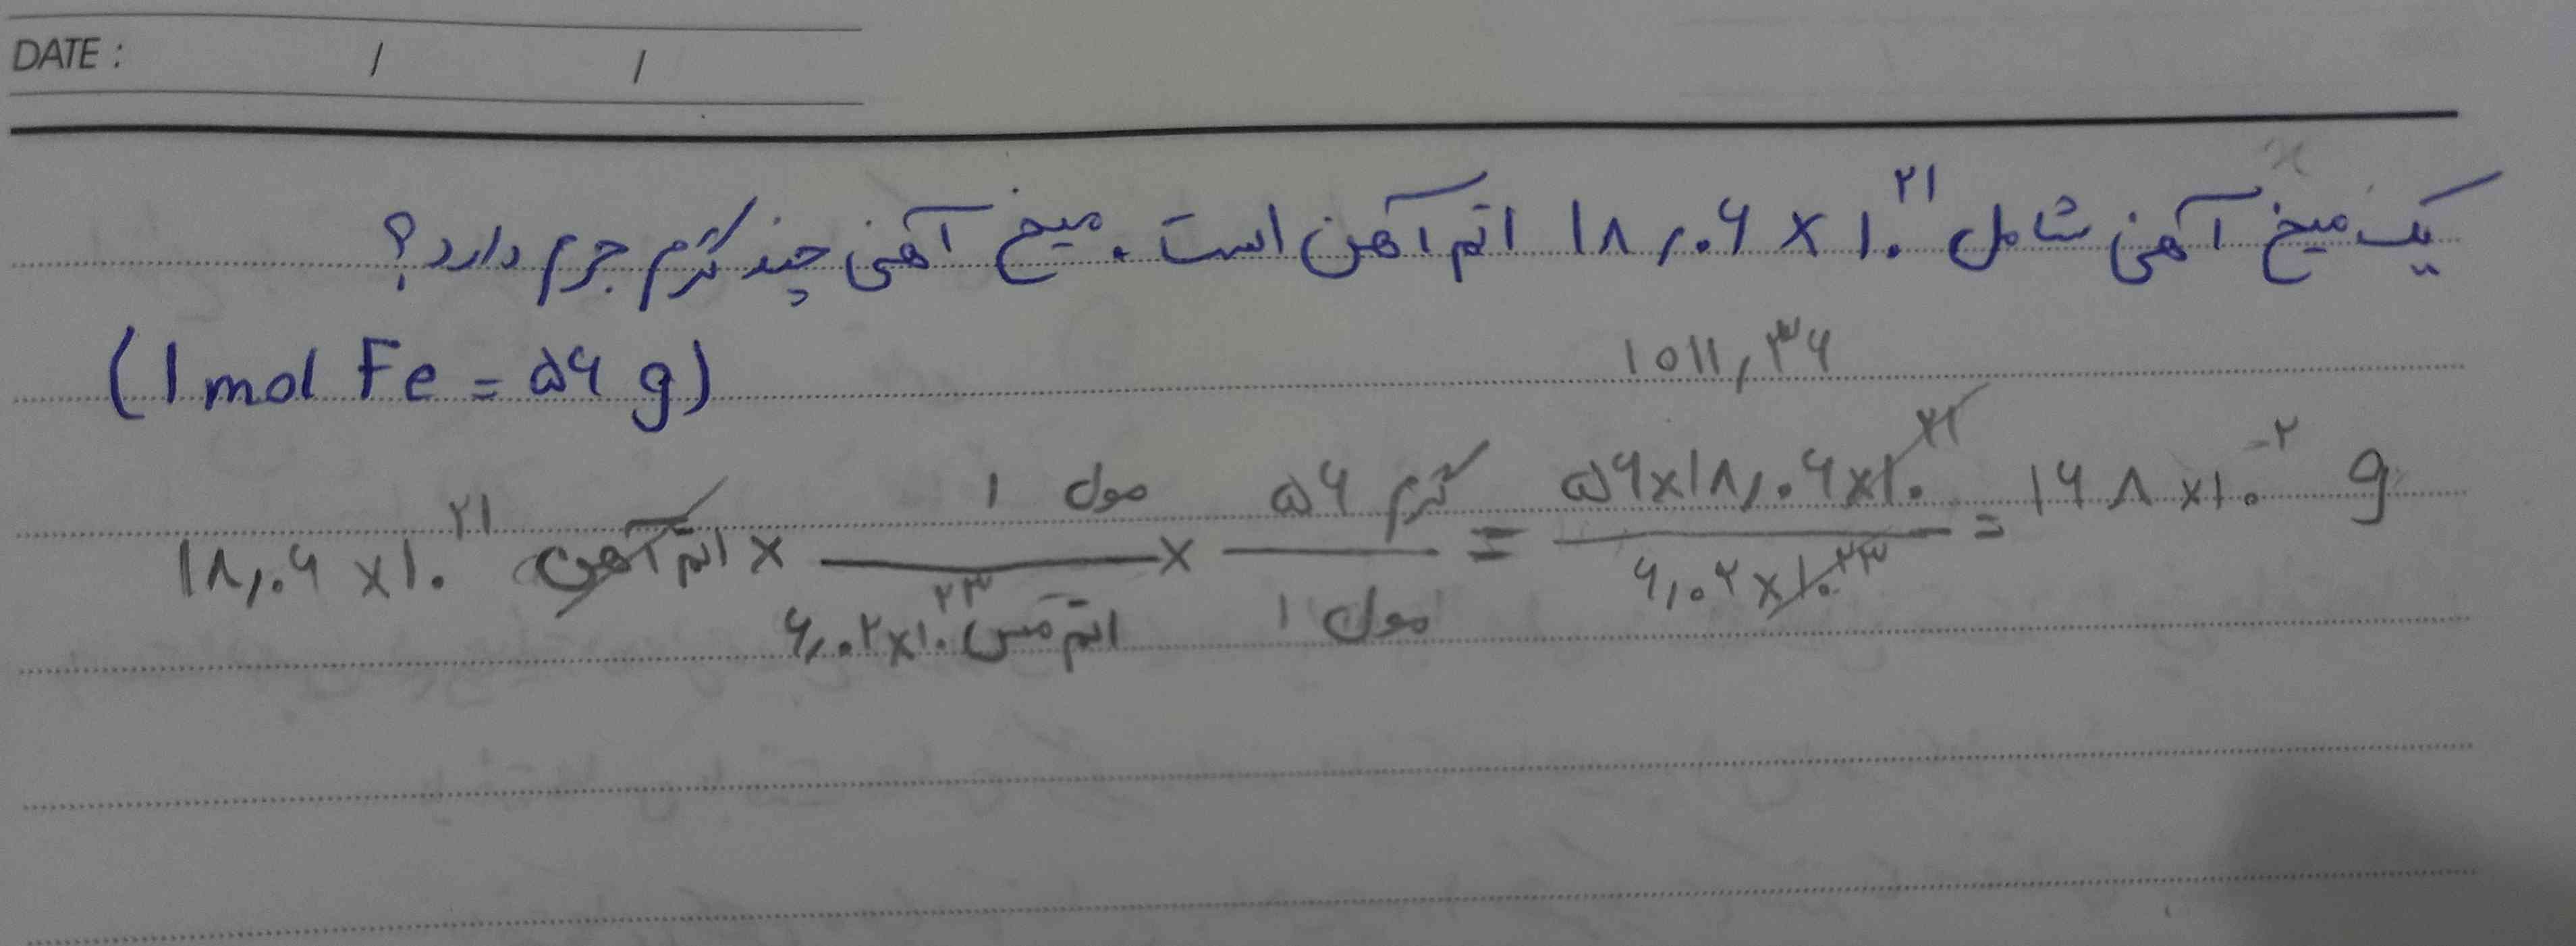 DATE : / /
یک میخ آهنی شامل ۱۸٫۰۶ × ۱۰^۲۱ اتم آهن است. میخ آهنی چند گرم جرم دارد؟
(1 mol Fe = ۵۶ g)
۱۰۱۱٫۳۶
۱۸٫۰۶ × ۱۰^۲۱ اتم آهن × ۱ مول / ۶٫۰۲×۱۰^۲۳ اتم مس × ۵۶ گرم / ۱ مول = ۵۶×۱۸٫۰۶×۱۰^۲۱ / ۶٫۰۲×۱۰^۲۳ = ۱۶۸ ×۱۰^-۲ g